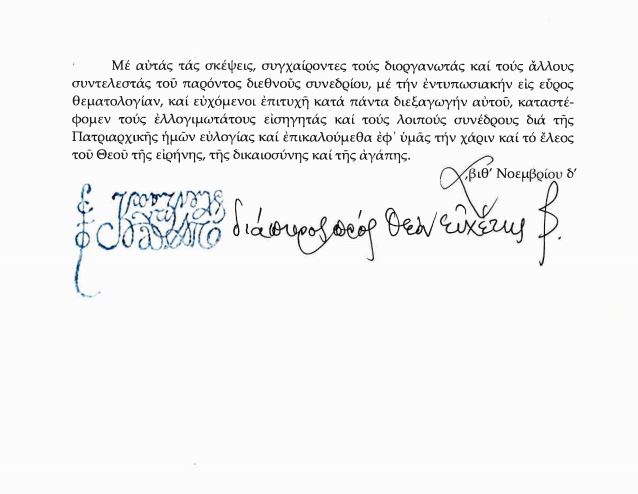 Μέ αὐτάς τάς σκέψεις, συγχαίροντες τούς διοργανωτάς καί τούς ἄλλους
συντελεστάς τοῦ παρόντος διεθνοῦς συνεδρίου, μέ τήν ἐντυπωσιακήν εἰς εὖρος
θεματολογίαν, καί εὐχόμενοι ἐπιτυχῆ κατά πάντα διεξαγωγήν αὐτοῦ, καταστέ-
φομεν τούς ἐλλογιμωτάτους εἰσηγητάς καί τούς λοιπούς συνέδρους διά τῆς
Πατριαρχικῆς ἡμῶν εὐλογίας καί ἐπικαλούμεθα ἐφ᾽ ὑμᾶς τήν χάριν καί τό ἔλεος
τοῦ Θεοῦ τῆς εἰρήνης, τῆς δικαιοσύνης καί τῆς ἀγάπης.
͵βιθ᾽ Νοεμβρίου δ᾽
διάπυρος πρός Θεόν εὐχέτης